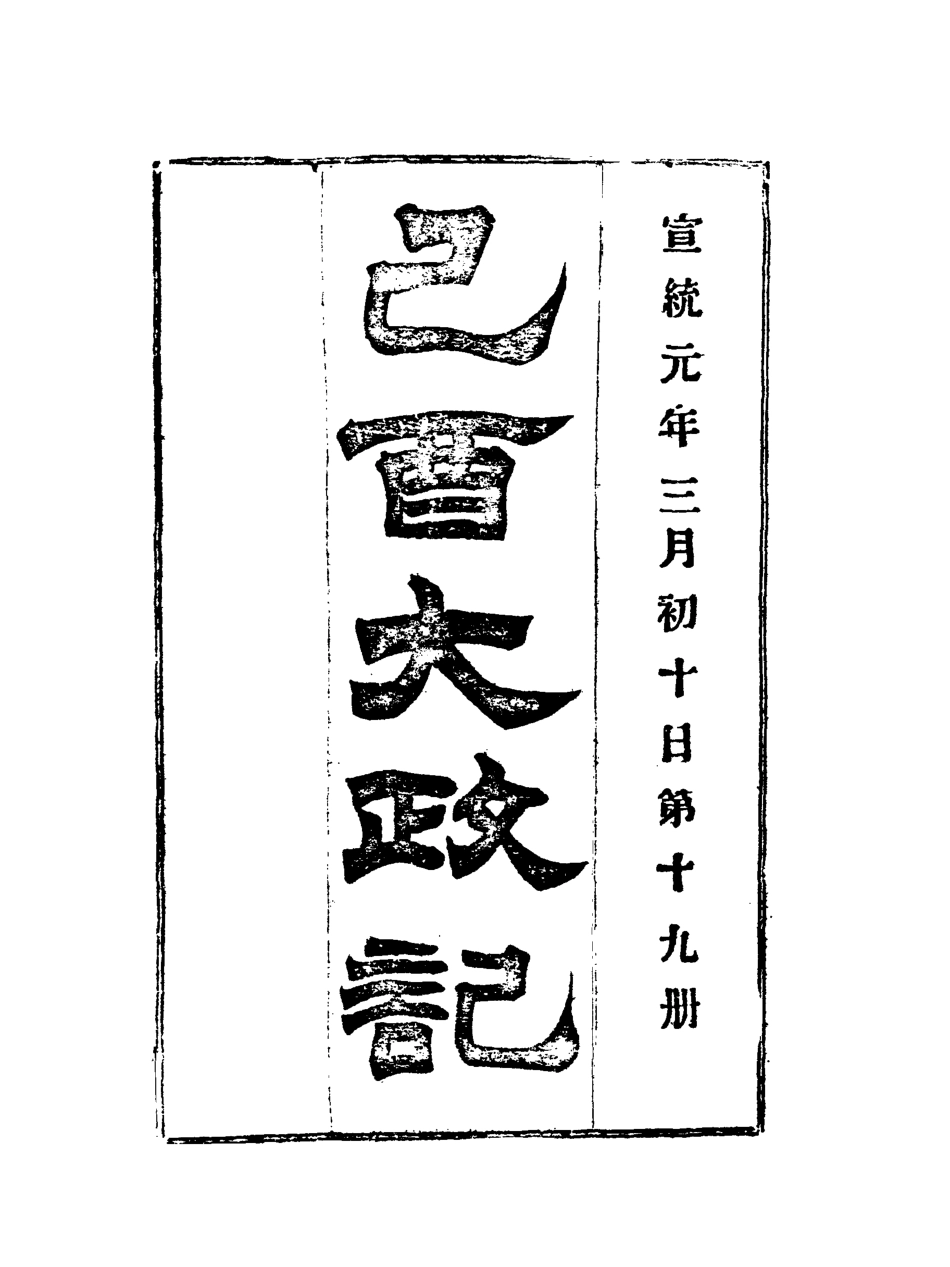 宣統元年三月初十日第十九册
己酉大政記